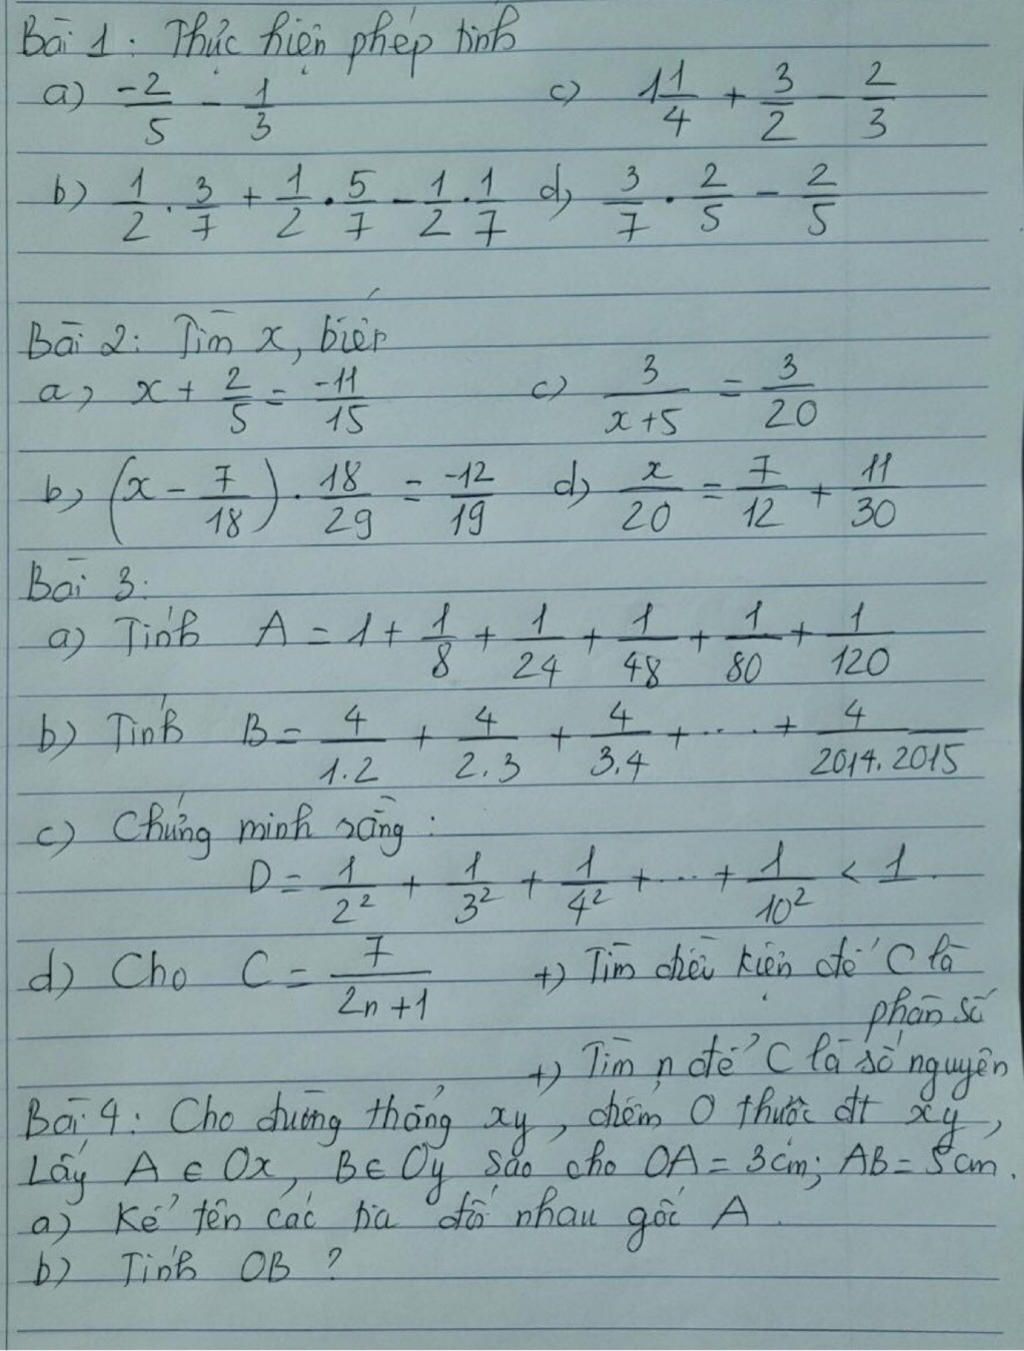 Bài 1: Thực hiện phép tính
a) -2/5 - 1/3 c) 1 1/4 + 3/2 - 2/3
b) 1/2 . 3/7 + 1/2 . 5/7 - 1/2 . 1/7 d) 3/7 . 2/5 - 2/5
Bài 2: Tìm x, biết
a) x + 2/5 = -11/15 c) 3/(x+5) = 3/20
b) (x - 7/18) . 18/29 = -12/19 d) x/20 = 7/12 + 11/30
Bài 3:
a) Tính A = 1 + 1/8 + 1/24 + 1/48 + 1/80 + 1/120
b) Tính B = 4/1.2 + 4/2.3 + 4/3.4 + ... + 4/2014.2015
c) Chứng minh rằng:
D = 1/2² + 1/3² + 1/4² + ... + 1/10² < 1.
d) Cho C = 7/(2n+1) +) Tìm điều kiện để C là
phân số
+) Tìm n để C là số nguyên
Bài 4: Cho đường thẳng xy, điểm O thuộc đt xy,
Lấy A ∈ Ox, B ∈ Oy sao cho OA = 3cm; AB = 5cm.
a) Kể tên các tia đối nhau gốc A.
b) Tính OB ?